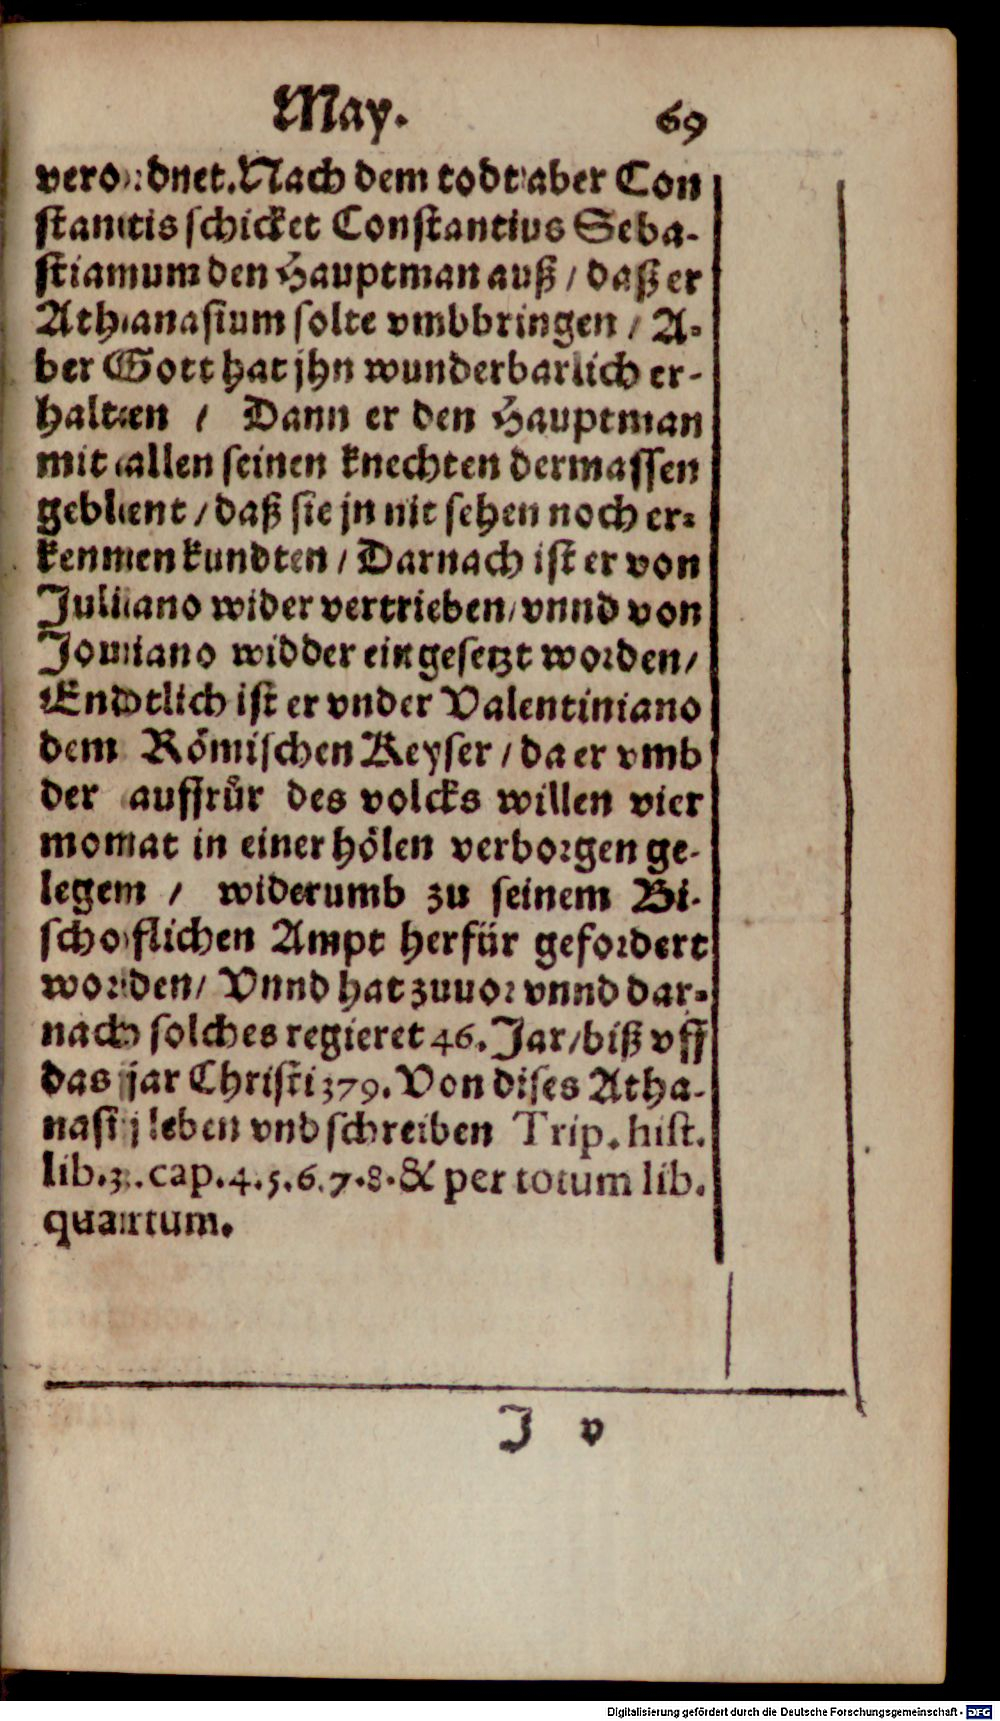 May. 69
verordnet. Nach dem todt aber Con
stantis schicket Constantius Seba-
stianum den Hauptman auß / daß er
Athanasium solte vmbbringen / A-
ber Gott hat jhn wunderbarlich er-
halten / Dann er den Hauptman
mit allen seinen knechten dermassen
geblent / daß sie jn nit sehen noch er-
kennen kundten / Darnach ist er von
Juliano wider vertrieben / vnnd von
Jouiano widder eingesetzt worden /
Endtlich ist er vnder Valentiniano
dem Römischen Keyser / da er vmb
der auffrůr des volcks willen vier
monat in einer hölen verborgen ge-
legen / widerumb zu seinem Bi-
schofflichen Ampt herfür gefordert
worden / Vnnd hat zuuor vnnd dar-
nach solches regieret 46. Jar / biß vff
das jar Christi 379. Von dises Atha-
nasij leben vnd schreiben Trip. hist.
lib. 3. cap. 4. 5. 6. 7. 8. & per totum lib.
quartum.
J v
Digitalisierung gefördert durch die Deutsche Forschungsgemeinschaft - DFG